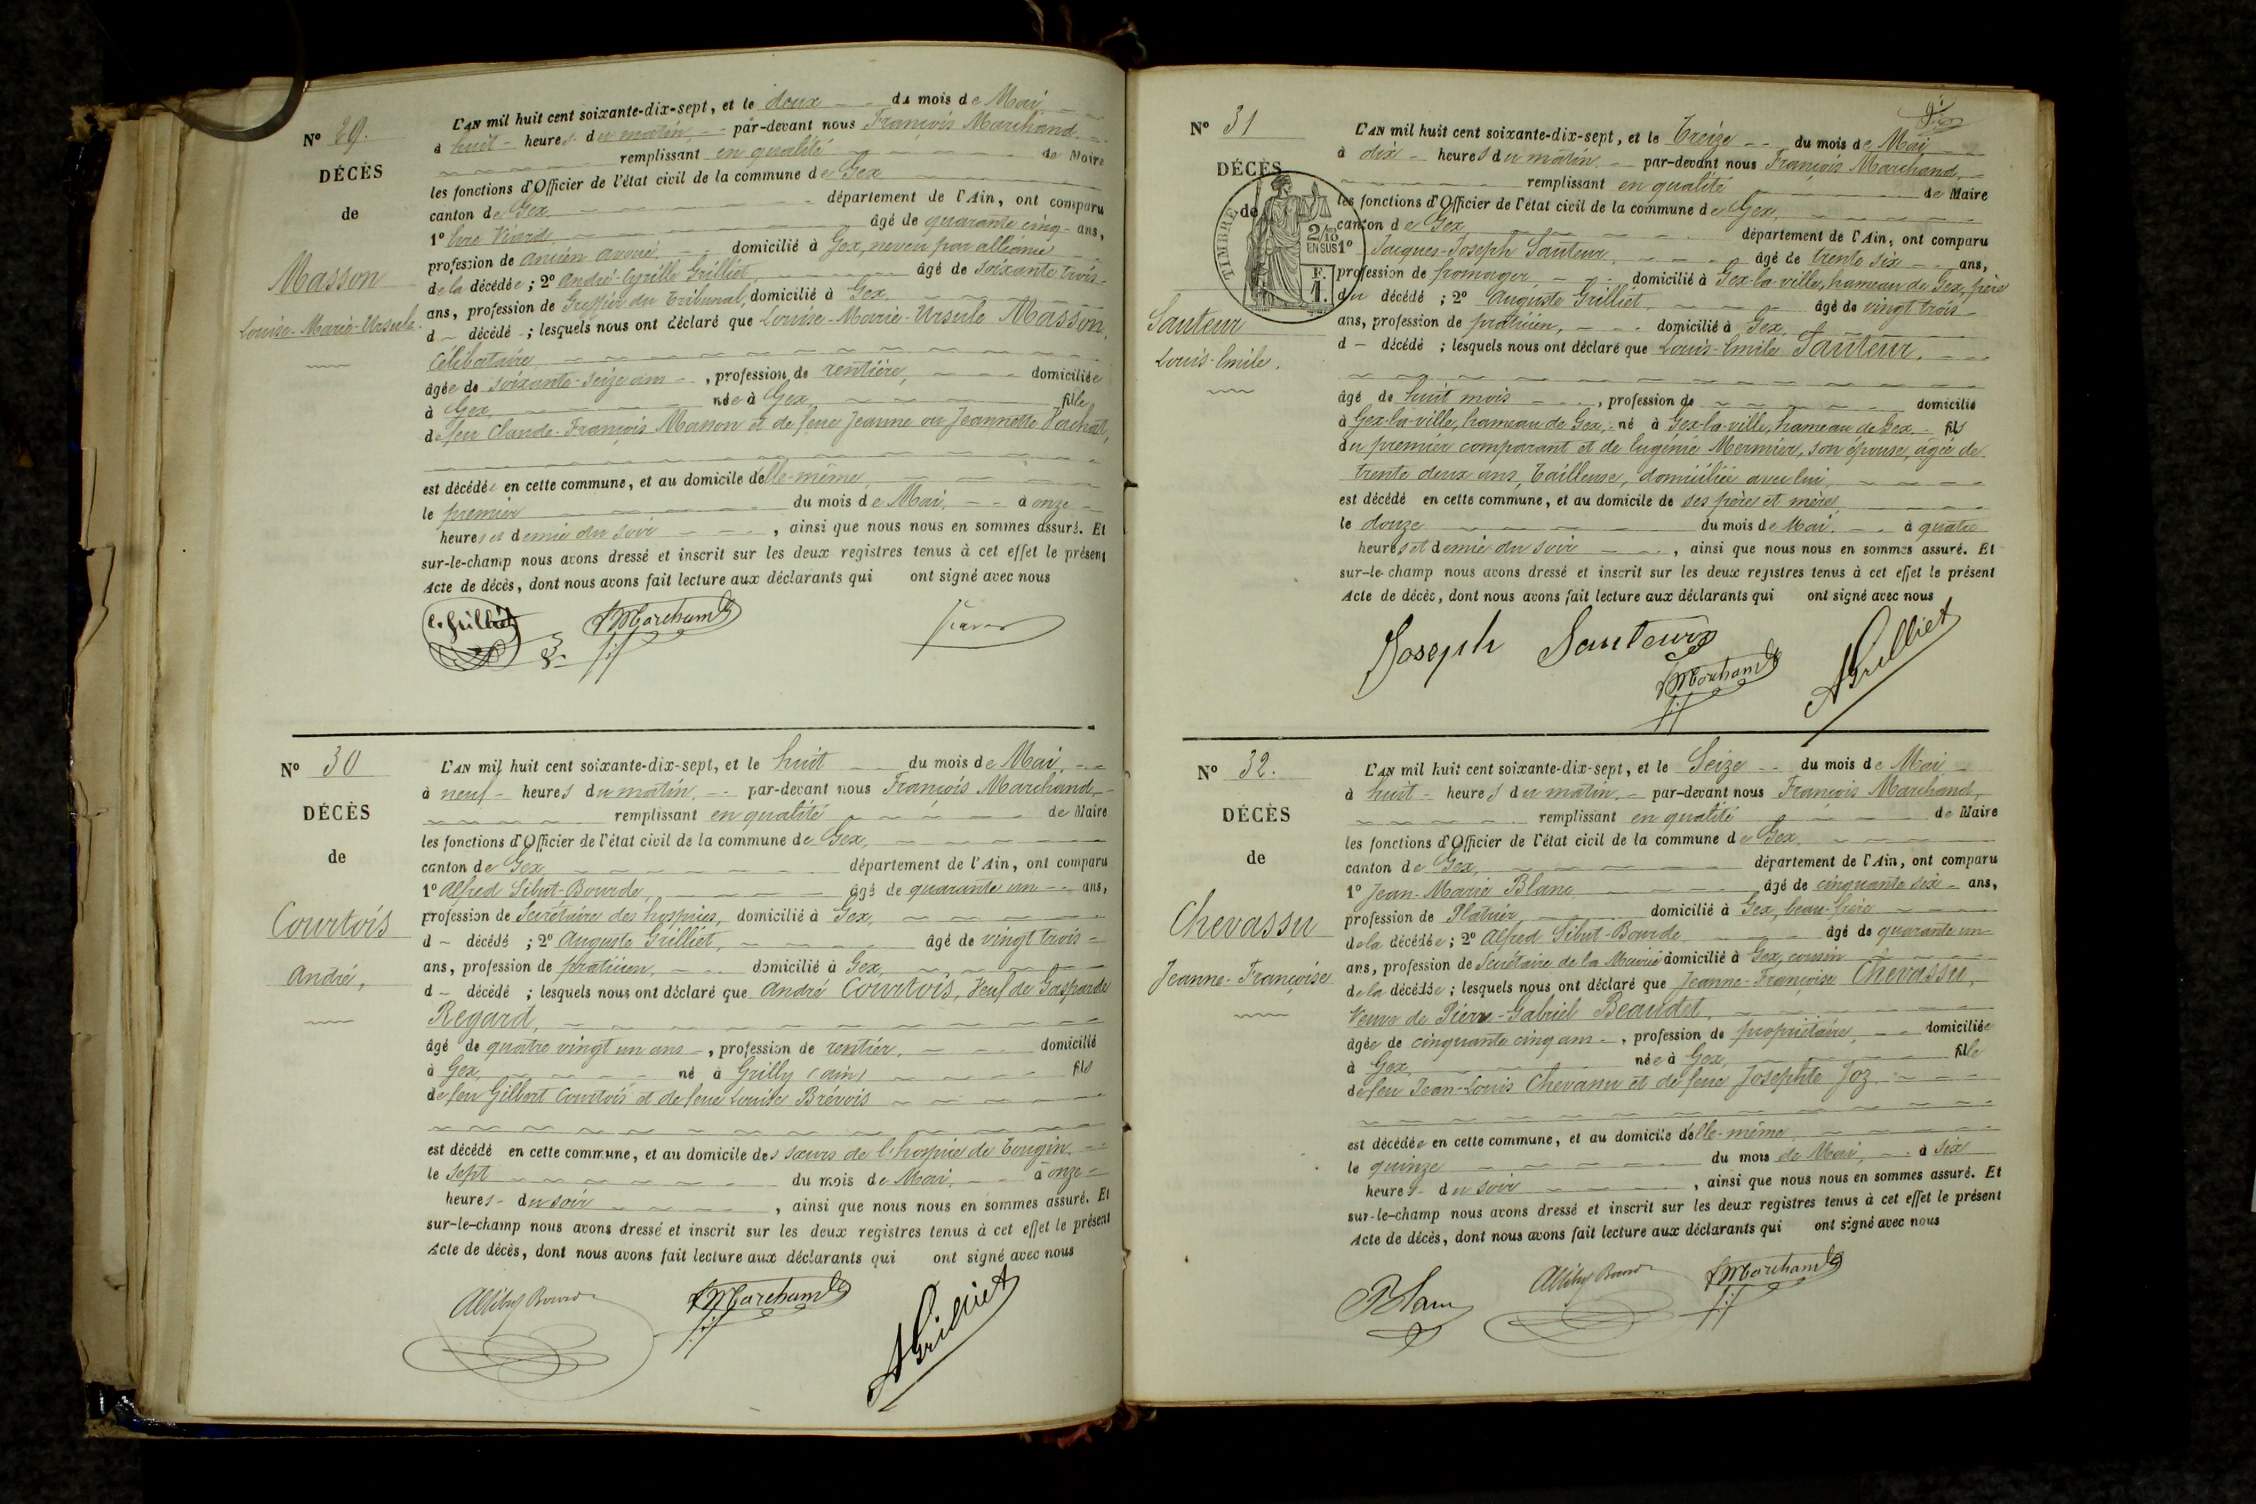 Nº 29.
DÉCÈS
de
Masson
Louise-Marie-Ursule.
L'AN mil huit cent soixante-dix-sept, et le deux du mois de Mai
à huit heures du matin par-devant nous François Marchand
remplissant en qualité de Maire
les fonctions d'Officier de l'état civil de la commune de Gex
canton de Gex département de l'Ain, ont comparu
1º âgé de quarante cinq ans,
profession de ancien avoué domicilié à Gex, neveu par alliance
de la décédée ; 2º André-Cyrille Grilliet âgé de soixante trois
ans, profession de Greffier du Tribunal, domicilié à Gex
d décédé ; lesquels nous ont déclaré que Louise-Marie-Ursule Masson,
Célibataire
âgée de soixante-seize ans, profession de rentière, domiciliée
à Gex née à Gex fille
de feu Claude-François Masson et de feue Jeanne ou Jeannette
est décédée en cette commune, et au domicile d'elle-même,
le premier du mois de Mai, à onze
heures et demie du soir, ainsi que nous nous en sommes assuré. Et
sur-le-champ nous avons dressé et inscrit sur les deux registres tenus à cet effet le présent
Acte de décès, dont nous avons fait lecture aux déclarants qui ont signé avec nous
C. Grilliet F Marchand
Nº 30
DÉCÈS
de
Courtois
André,
L'AN mil huit cent soixante-dix-sept, et le huit du mois de Mai
à neuf heures du matin par-devant nous François Marchand,
remplissant en qualité de Maire
les fonctions d'Officier de l'état civil de la commune de Gex,
canton de Gex département de l'Ain, ont comparu
1º Alfred Sibut-Bourde, âgé de quarante un ans,
profession de Secrétaire des hospices, domicilié à Gex,
d décédé ; 2º Auguste Grilliet, âgé de vingt trois
ans, profession de praticien, domicilié à Gex,
d décédé ; lesquels nous ont déclaré que André Courtois, Veuf de Gasparde
Regard,
âgé de quatre vingt un ans, profession de rentier, domicilié
à Gex, né à Grilly (ain) fils
de feu Gilbert Courtois et de feue Louise Brévois
est décédé en cette commune, et au domicile des sœurs de l'hospice de Tougin
le sept du mois de Mai, à onze
heures du soir, ainsi que nous nous en sommes assuré. Et
sur-le-champ nous avons dressé et inscrit sur les deux registres tenus à cet effet le présent
Acte de décès, dont nous avons fait lecture aux déclarants qui ont signé avec nous
ASibut Bourde F Marchand AGrilliet
Nº 31
DÉCÈS
de
TIMBRE
2/10
EN SUS
F.
1.
Sauteur
Louis-Emile.
L'AN mil huit cent soixante-dix-sept, et le Treize du mois de Mai
à dix heures du matin par-devant nous François Marchand,
remplissant en qualité de Maire
les fonctions d'Officier de l'état civil de la commune de Gex,
canton de Gex département de l'Ain, ont comparu
1º Jacques-Joseph Sauteur, âgé de trente six ans,
profession de fromager domicilié à Gex-la-ville, hameau de Gex, père
du décédé ; 2º Auguste Grilliet, âgé de vingt trois
ans, profession de praticien, domicilié à Gex,
d décédé ; lesquels nous ont déclaré que Louis-Emile Sauteur.
âgé de huit mois, profession de domicilié
à Gex-la-ville, hameau de Gex, né à Gex-la-ville, hameau de Gex fils
du premier comparant et de Eugénie Mermier, son épouse, âgée de
trente deux ans, Tailleuse, domiciliée avec lui,
est décédé en cette commune, et au domicile de ses père et mère,
le douze du mois de Mai, à quatre
heures et demie du soir, ainsi que nous nous en sommes assuré. Et
sur-le-champ nous avons dressé et inscrit sur les deux registres tenus à cet effet le présent
Acte de décès, dont nous avons fait lecture aux déclarants qui ont signé avec nous
Joseph Sauteur F Marchand AGrilliet
Nº 32.
DÉCÈS
de
Chevassu
Jeanne-Françoise
L'AN mil huit cent soixante-dix-sept, et le Seize du mois de Mai
à huit heures du matin par-devant nous François Marchand,
remplissant en qualité de Maire
les fonctions d'Officier de l'état civil de la commune de Gex,
canton de Gex, département de l'Ain, ont comparu
1º Jean-Marie Blanc âgé de cinquante six ans,
profession de Platrier, domicilié à Gex, beau-frère
de la décédée ; 2º Alfred Sibut-Bourde âgé de quarante un
ans, profession de Secrétaire de la Mairie domicilié à Gex, cousin
de la décédée ; lesquels nous ont déclaré que Jeanne-Françoise Chevassu,
Veuve de Pierre-Gabriel Beaudet,
âgée de cinquante cinq ans, profession de propriétaire, domiciliée
à Gex, née à Gex, fille
de feu Jean-Louis Chevassu et de feue Josephte Joz
est décédée en cette commune, et au domicile d'elle-même
le quinze du mois de Mai, à six
heures du soir, ainsi que nous nous en sommes assuré. Et
sur-le-champ nous avons dressé et inscrit sur les deux registres tenus à cet effet le présent
Acte de décès, dont nous avons fait lecture aux déclarants qui ont signé avec nous
Blanc ASibut Bourde F Marchand